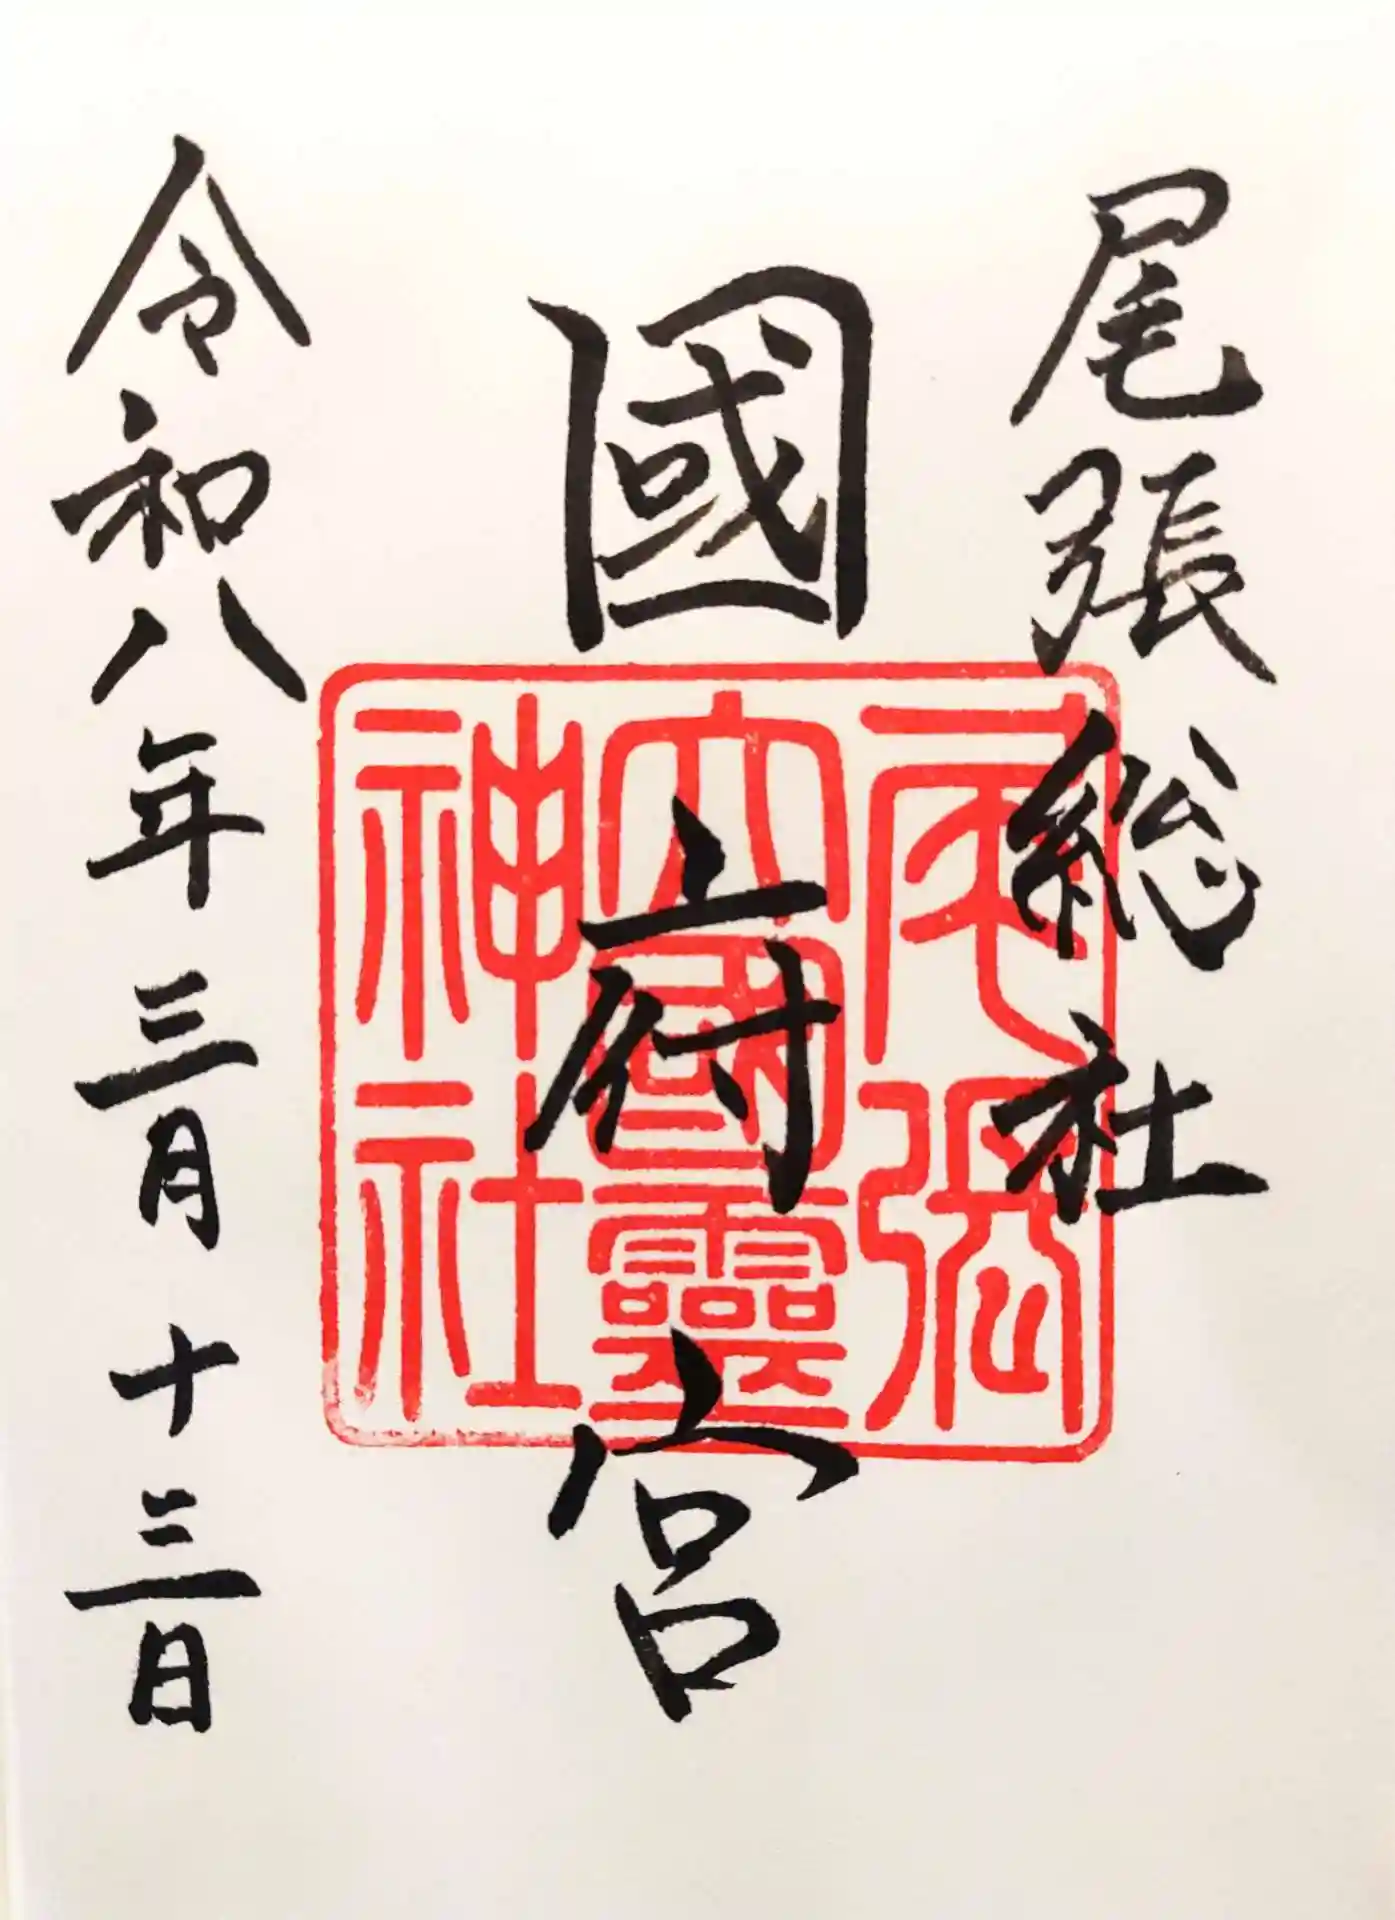 尾張総社
國府宮
令和八年三月十三日
尾張
大國霊
神社